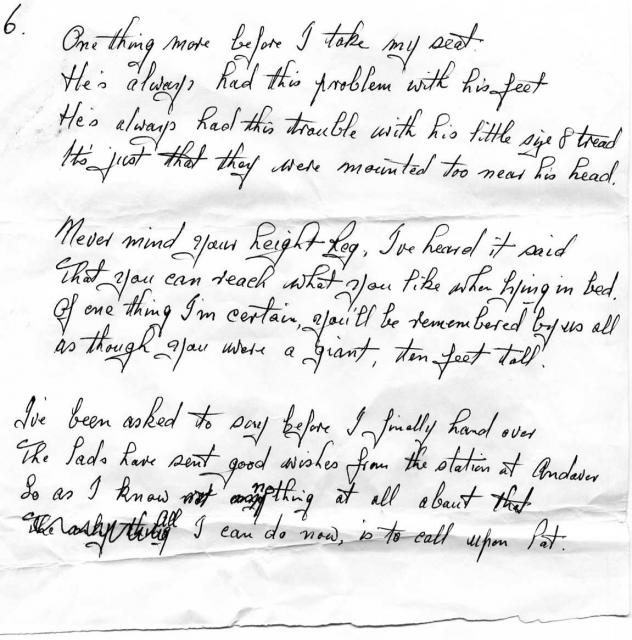 6.
One thing more before I take my seat.
He's always had this problem with his feet
He's always had this trouble with his little size 8 tread
It's just that they were mounted too near his head.
Never mind your height Reg, I've heard it said
That you can reach what you like when lying in bed.
Of one thing I'm certain, you'll be remembered by us all
as though you were a giant, ten feet tall.
I've been asked to say before I finally hand over
The lads have sent good wishes from the station at Andover
So as I know nothing at all about that
All I can do now, is to call upon Pat.